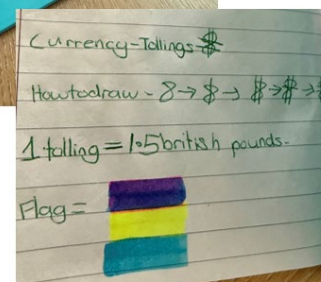 Currency-Tollings-
How to draw - 8→ $→
1 tolling = 1.5 british pounds.
Flag=